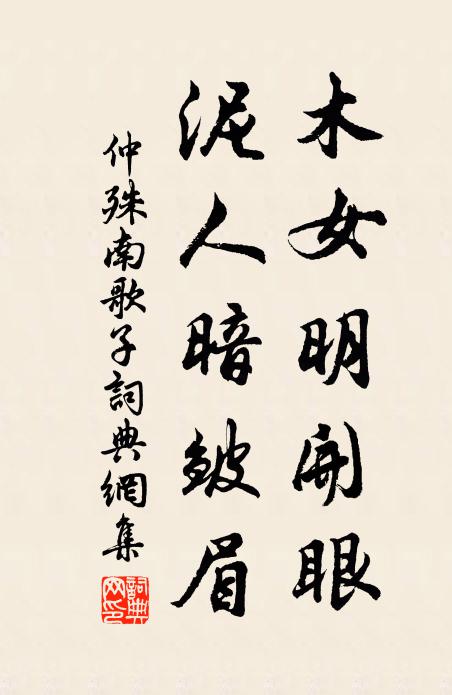 木女明開眼
泥人暗皱眉
仲殊南歌子詞典網集
詞典
网印